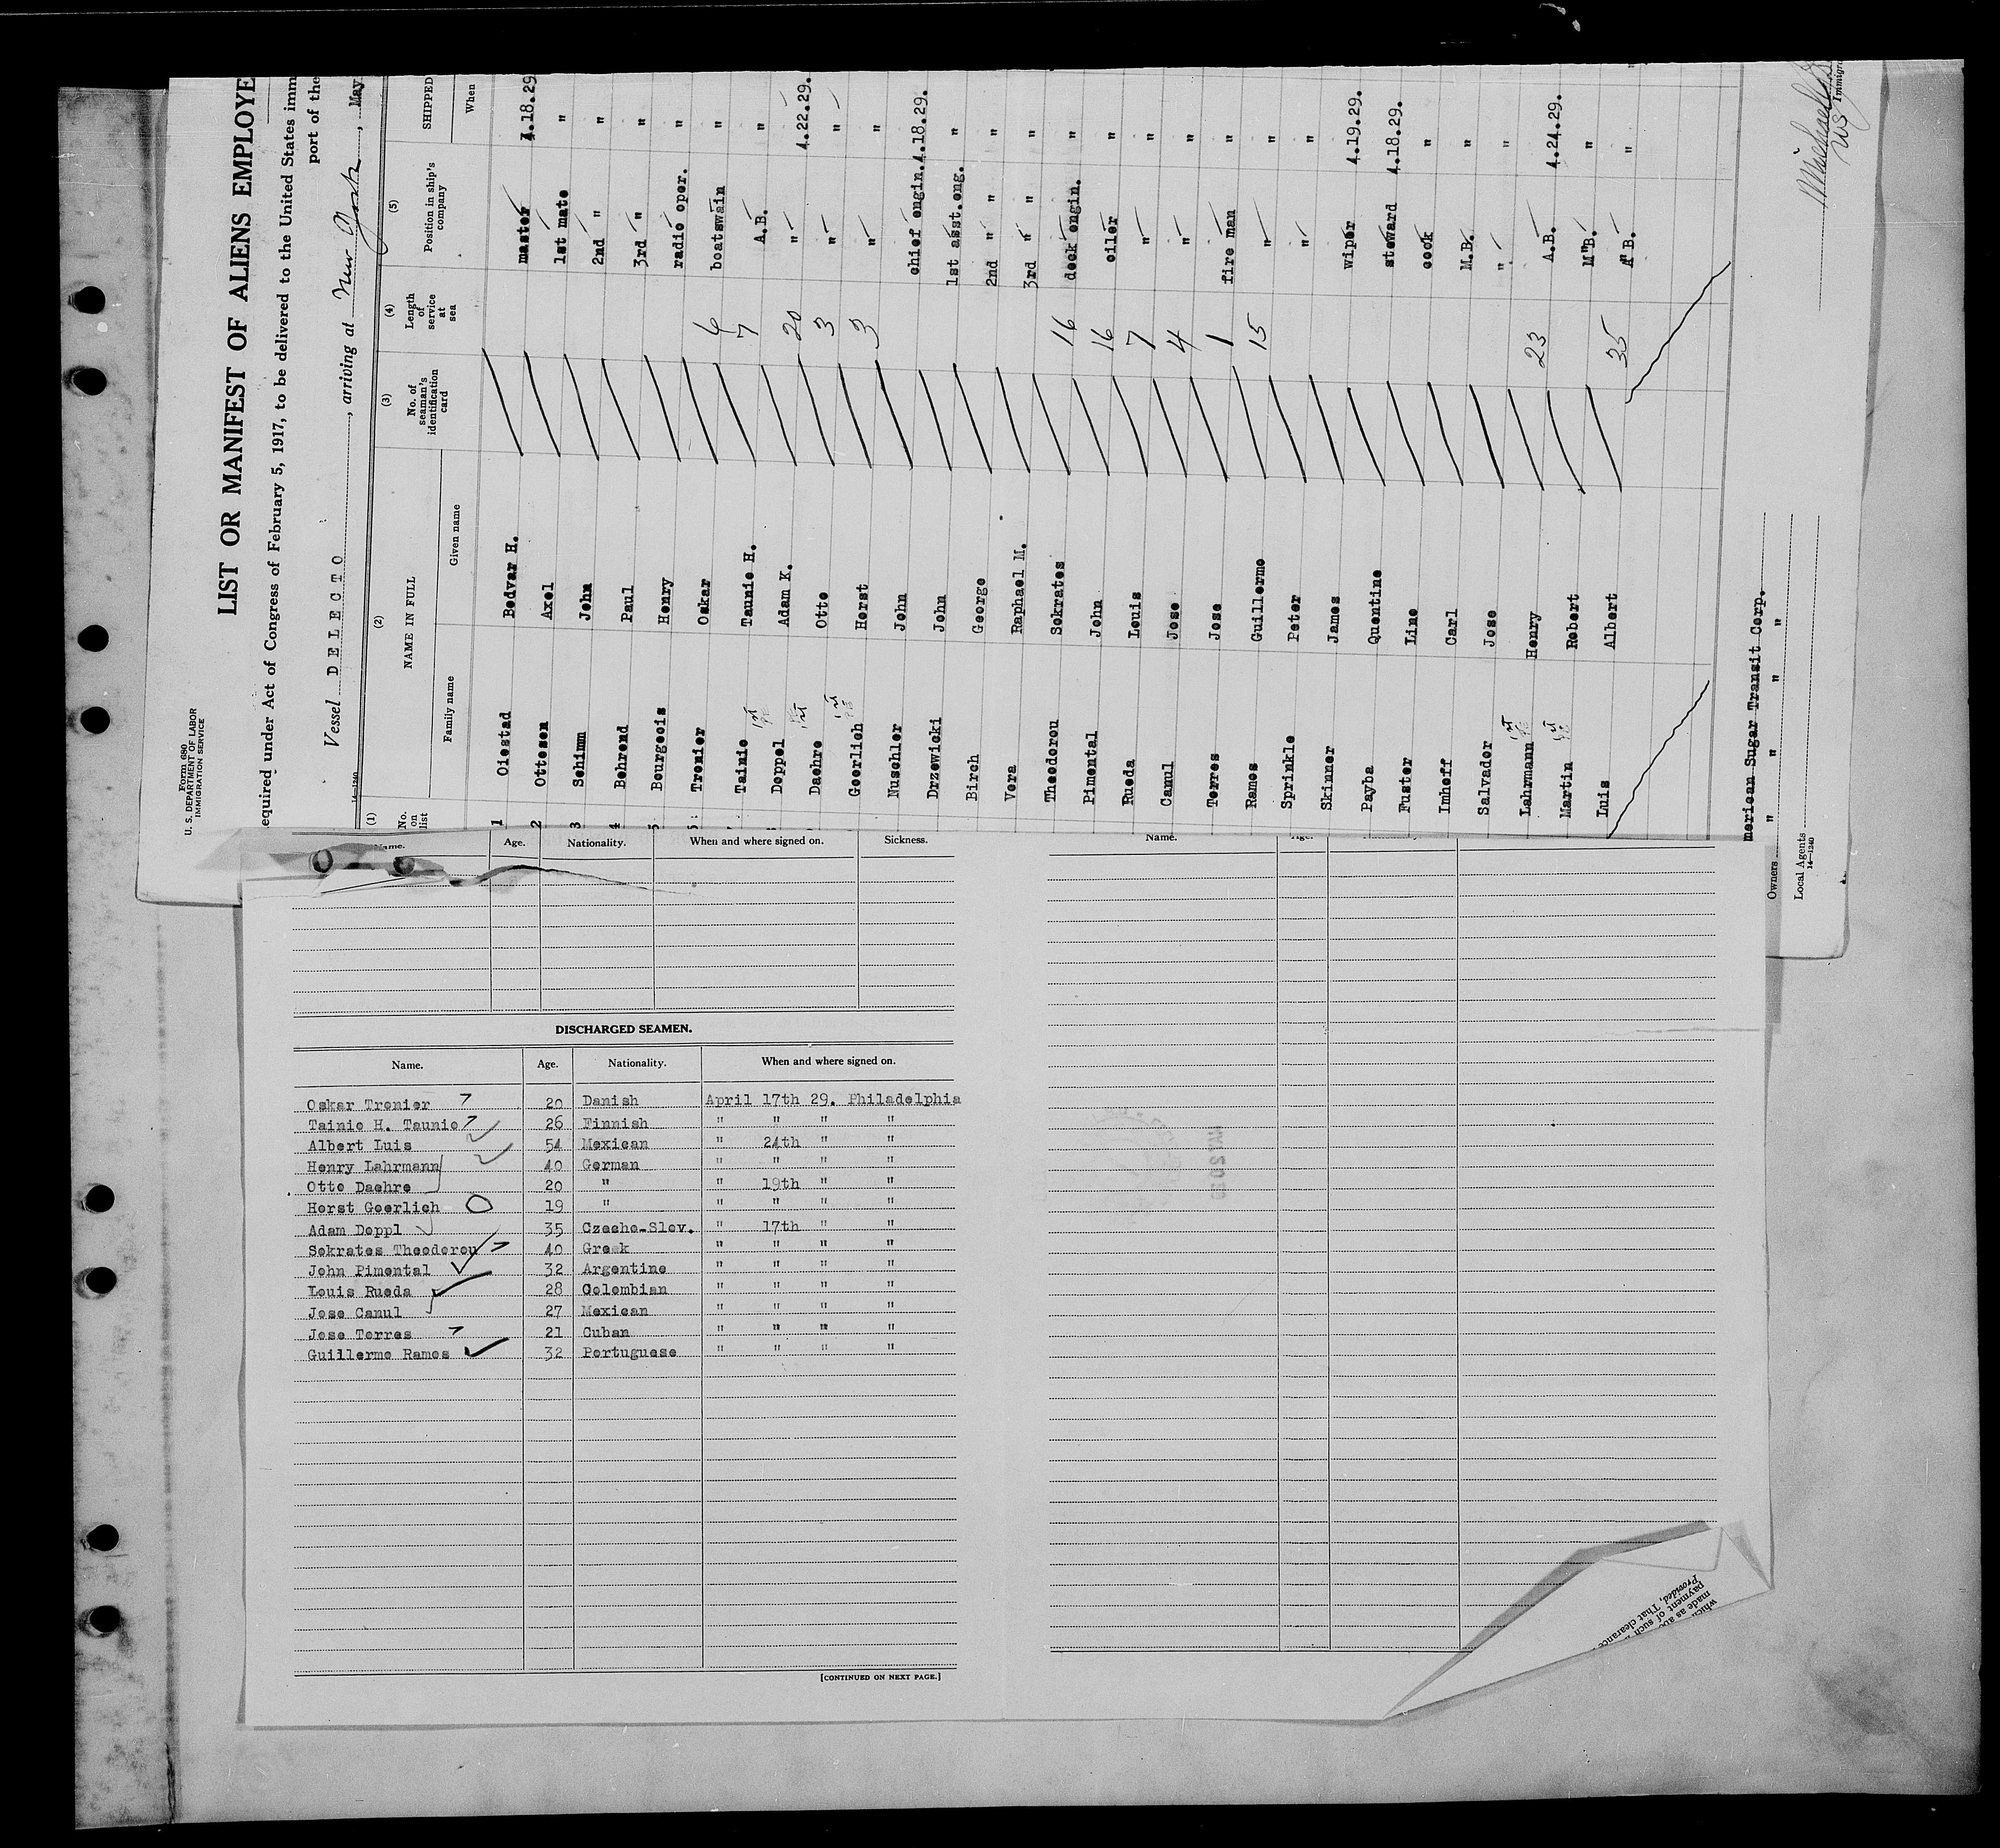 Form 680
U. S. DEPARTMENT OF LABOR
IMMIGRATION SERVICE
LIST OR MANIFEST OF ALIENS EMPLOYE
equired under Act of Congress of February 5, 1917, to be delivered to the United States imm
port of the
Vessel DELECTO, arriving at New York, May
14-1240
(1) (2) (3) (4) (5)
No. on list NAME IN FULL No. of seaman's identification card Length of service at sea Position in ship's company SHIPPED
Family name Given name When
1 Oiestad Bedvar H. master 4.18.29
2 Ottesen Axel 1st mate "
3 Schimm John 2nd " "
4 Behrend Paul 3rd " "
5 Bourgeois Henry radio oper. "
Tronier Oskar 6 boatswain "
Tainio Taunio H. 7 A.B. "
Doppel Adam K. 20 " 4.22.29.
Daehre Otto 3 " "
Goerlich Horst 3 " "
Muschler John chief engin. 4.18.29.
Drzewicki John 1st asst.eng. "
Birch George 2nd " " "
Vera Raphael M. 3rd " " "
Theodorou Sokrates 16 deck engin. "
Pimental John 16 oiler "
Rueda Louis 7 " "
Camul Jose 4 " "
Torres Jose 1 fire man "
Ramos Guillermo 15 " "
Sprinkle Peter " "
Skinner James wiper 4.19.29.
Payba Quentine steward 4.18.29.
Fuster Lino cook "
Imhoff Carl M.B. "
Salvador Jose " "
Lahrmann Henry 23 A.B. 4.24.29.
Martin Robert M"B. "
Luis Albert 35 A"B. "
merican Sugar Transit Corp.
Owners " " " "
Local Agents
14-1240
Immigra
Name. Age. Nationality. When and where signed on. Sickness.
Name. Age.
DISCHARGED SEAMEN.
Name. Age. Nationality. When and where signed on.
Oskar Tronier 20 Danish April 17th 29. Philadelphia
Tainio H. Taunio 26 Finnish " " " "
Albert Luis 54 Mexican " 24th " "
Henry Lahrmann 40 German " " " "
Otto Daehre 20 " " 19th " "
Horst Goerlich 19 " " " " "
Adam Doppl 35 Czecho-Slov. " 17th " "
Sokrates Theodorou 40 Greek " " " "
John Pimental 32 Argentine " " " "
Louis Rueda 28 Colombian " " " "
Jose Camul 27 Mexican " " " "
Jose Torres 21 Cuban " " " "
Guillermo Ramos 32 Portuguese " " " "
[CONTINUED ON NEXT PAGE.]
Provided, That clearance
payment of such
made as